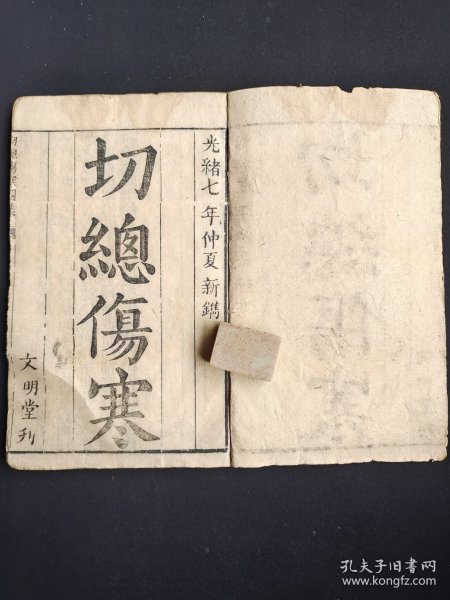 光緒七年仲夏新鐫
切總傷寒
文明堂刋
孔夫子旧书网
www.kongfz.com